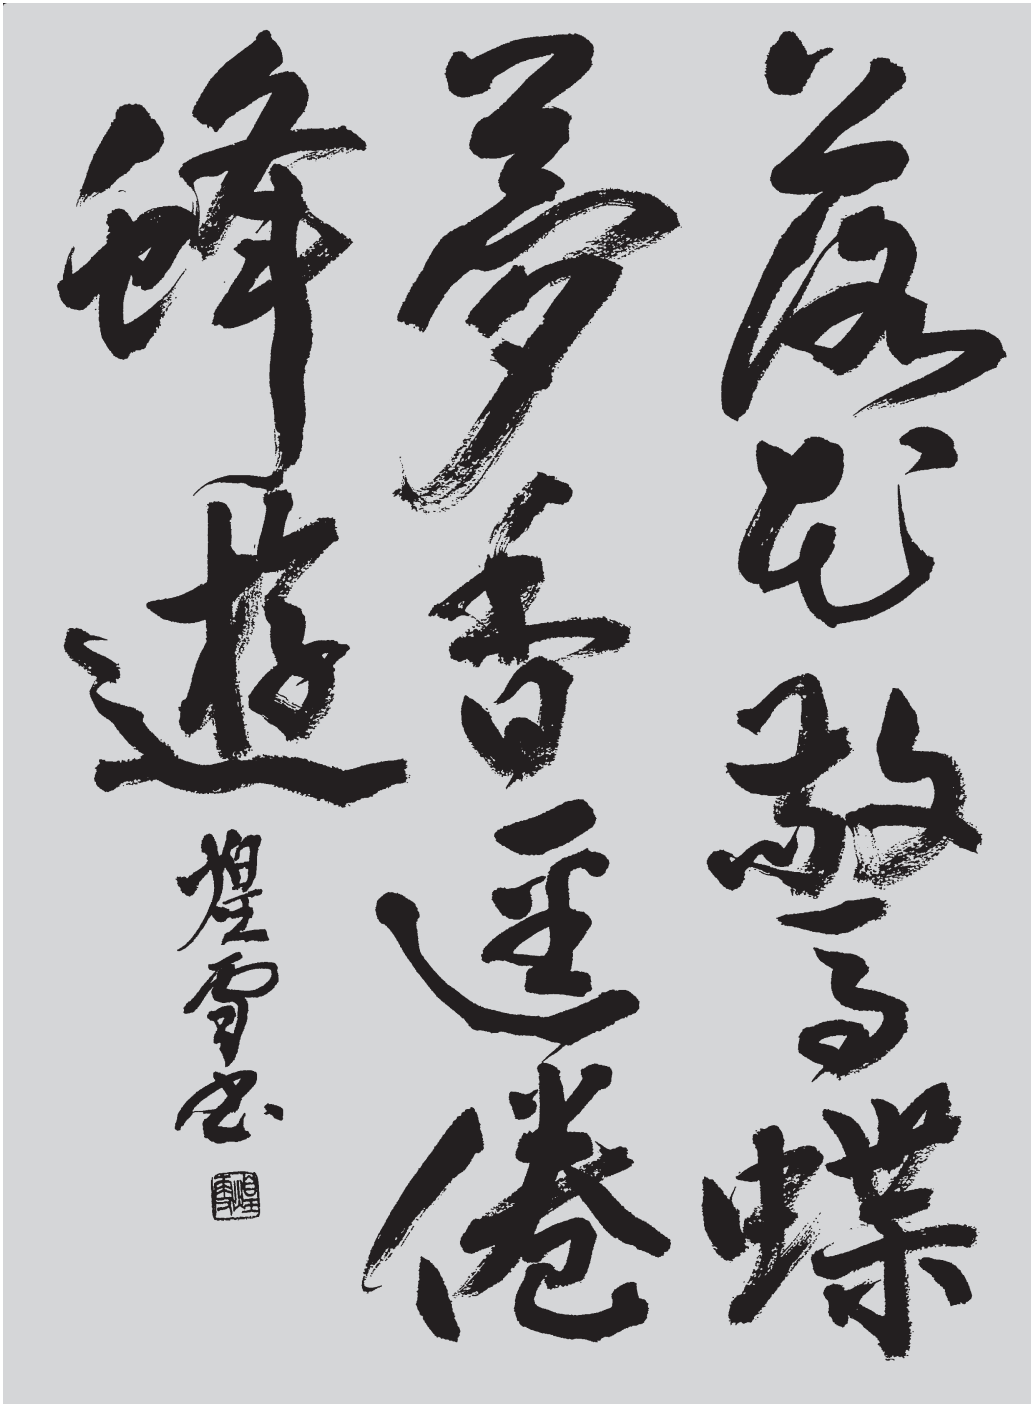 落花驚蝶
夢香逕倦
蜂遊
煌雪書
煌雪